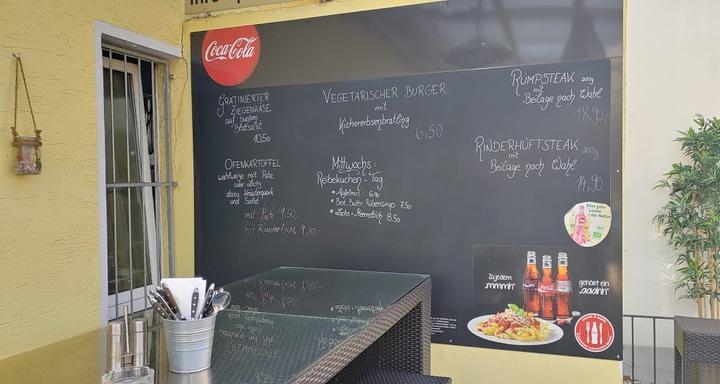 Coca-Cola
GRATINIERTER
ZIEGENKÄSE
auf buntem
Blattsalat
10,50
OFENKARTOFFEL
wahlweise mit Pute
oder Lachs
dazu Kräuterquark
und Salat
mit Pute 9,50,-
mit Räucherlachs 9,80,-
VEGETARISCHER BURGER
mit
Kichererbsenbratling
6,50
Mittwochs:
Reibekuchen-Tag
* Apfelmus 6,90
* Brot, Butter, Rübensirup 7,50
* Lachs + Meerrettich 8,50
RUMPSTEAK 200g
mit
Beilage nach Wahl
18,90,-
RINDERHÜFTSTEAK 200g
mit
Beilage nach Wahl
14,90
Eine gute
Laune
der Natur
Zu jedem
„mmmh“
gehört ein
„aaahh“